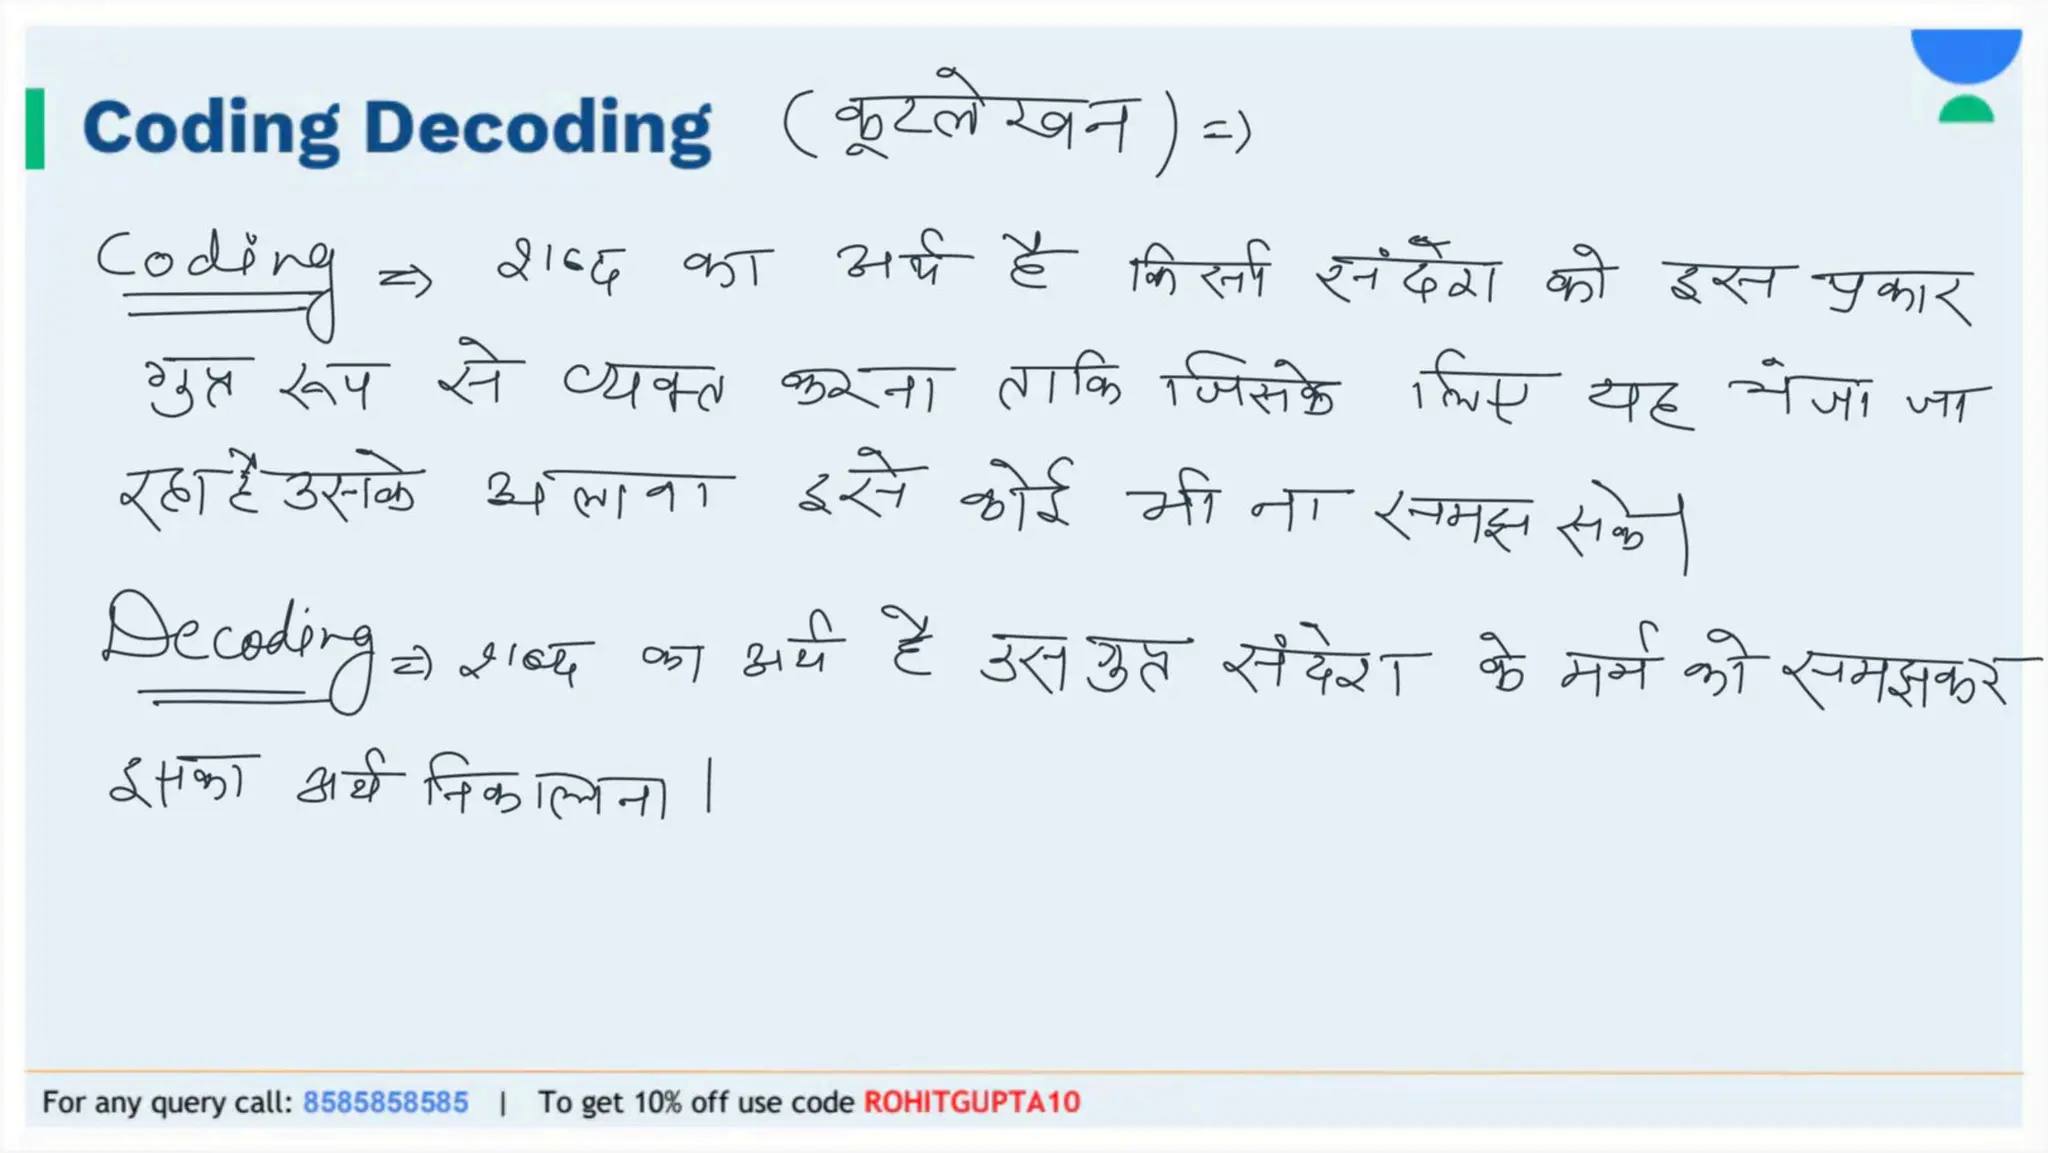 Coding Decoding (कूटलेखन) =>
Coding => शब्द का अर्थ है किसी संदेश को इस प्रकार
गुप्त रूप से व्यक्त करना ताकि जिसके लिए यह भेजा जा
रहा है उसके अलावा इसे कोई भी ना समझ सके।
Decoding => शब्द का अर्थ है उस गुप्त संदेश के मर्म को समझकर
इसका अर्थ निकालना।
For any query call: 8585858585 | To get 10% off use code ROHITGUPTA10